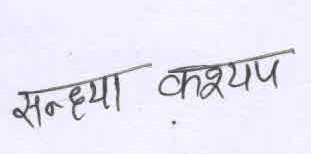 सन्ध्या कश्यप